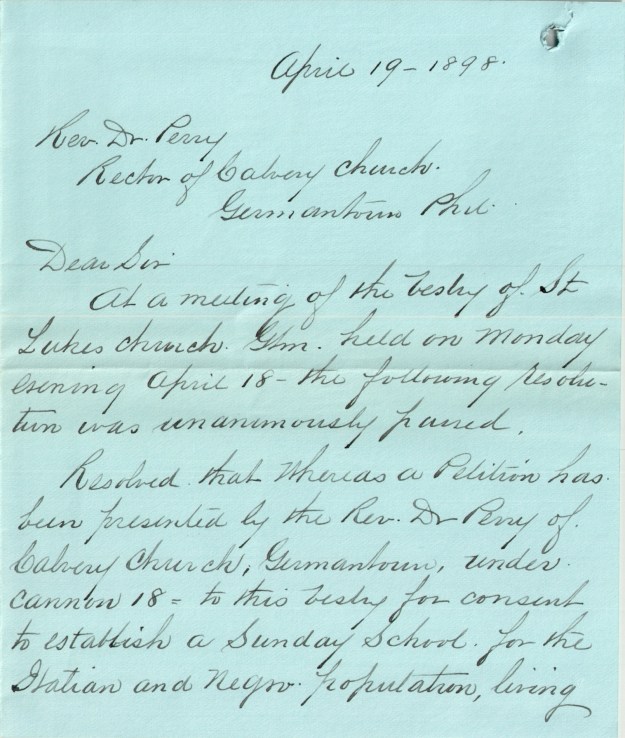 April 19 - 1898.
Rev. Dr. Perry
Rector of Calvery Church.
Germantown Phil.
Dear Sir
At a meeting of the Vestry of St
Lukes Church. Gtn. held on Monday
evening April 18 - the following resolu-
tion was unanimously passed.
Resolved. that Whereas a Petition has
been presented by the Rev. Dr Perry of
Calvery Church, Germantown, under
Cannon 18 = to this Vestry for consent
to establish a Sunday School. for the
Italian and Negro. population, living